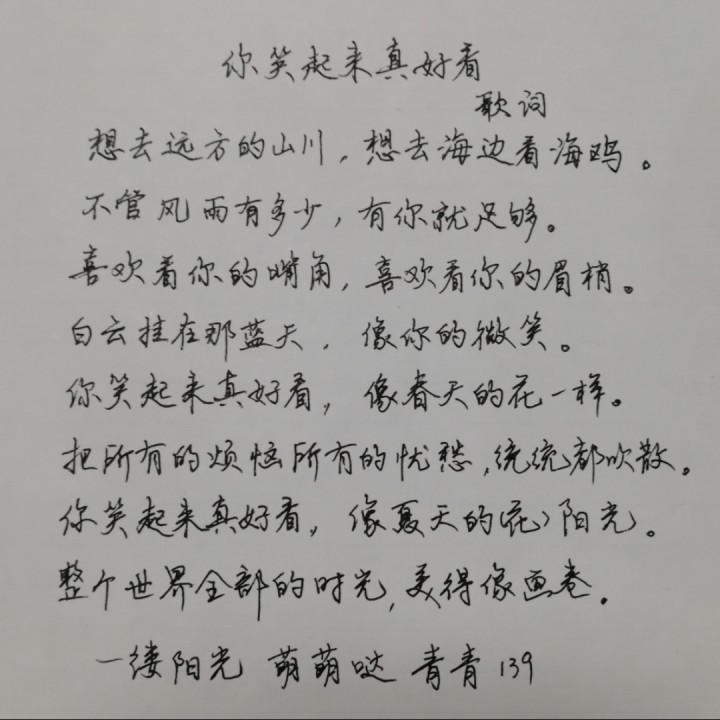 你笑起来真好看
歌词
想去远方的山川，想去海边看海鸥。
不管风雨有多少，有你就足够。
喜欢看你的嘴角，喜欢看你的眉梢。
白云挂在那蓝天，像你的微笑。
你笑起来真好看，像春天的花一样。
把所有的烦恼所有的忧愁，统统都吹散。
你笑起来真好看，像夏天的(花)阳光。
整个世界全部的时光，美得像画卷。
一缕阳光 萌萌哒 青青139